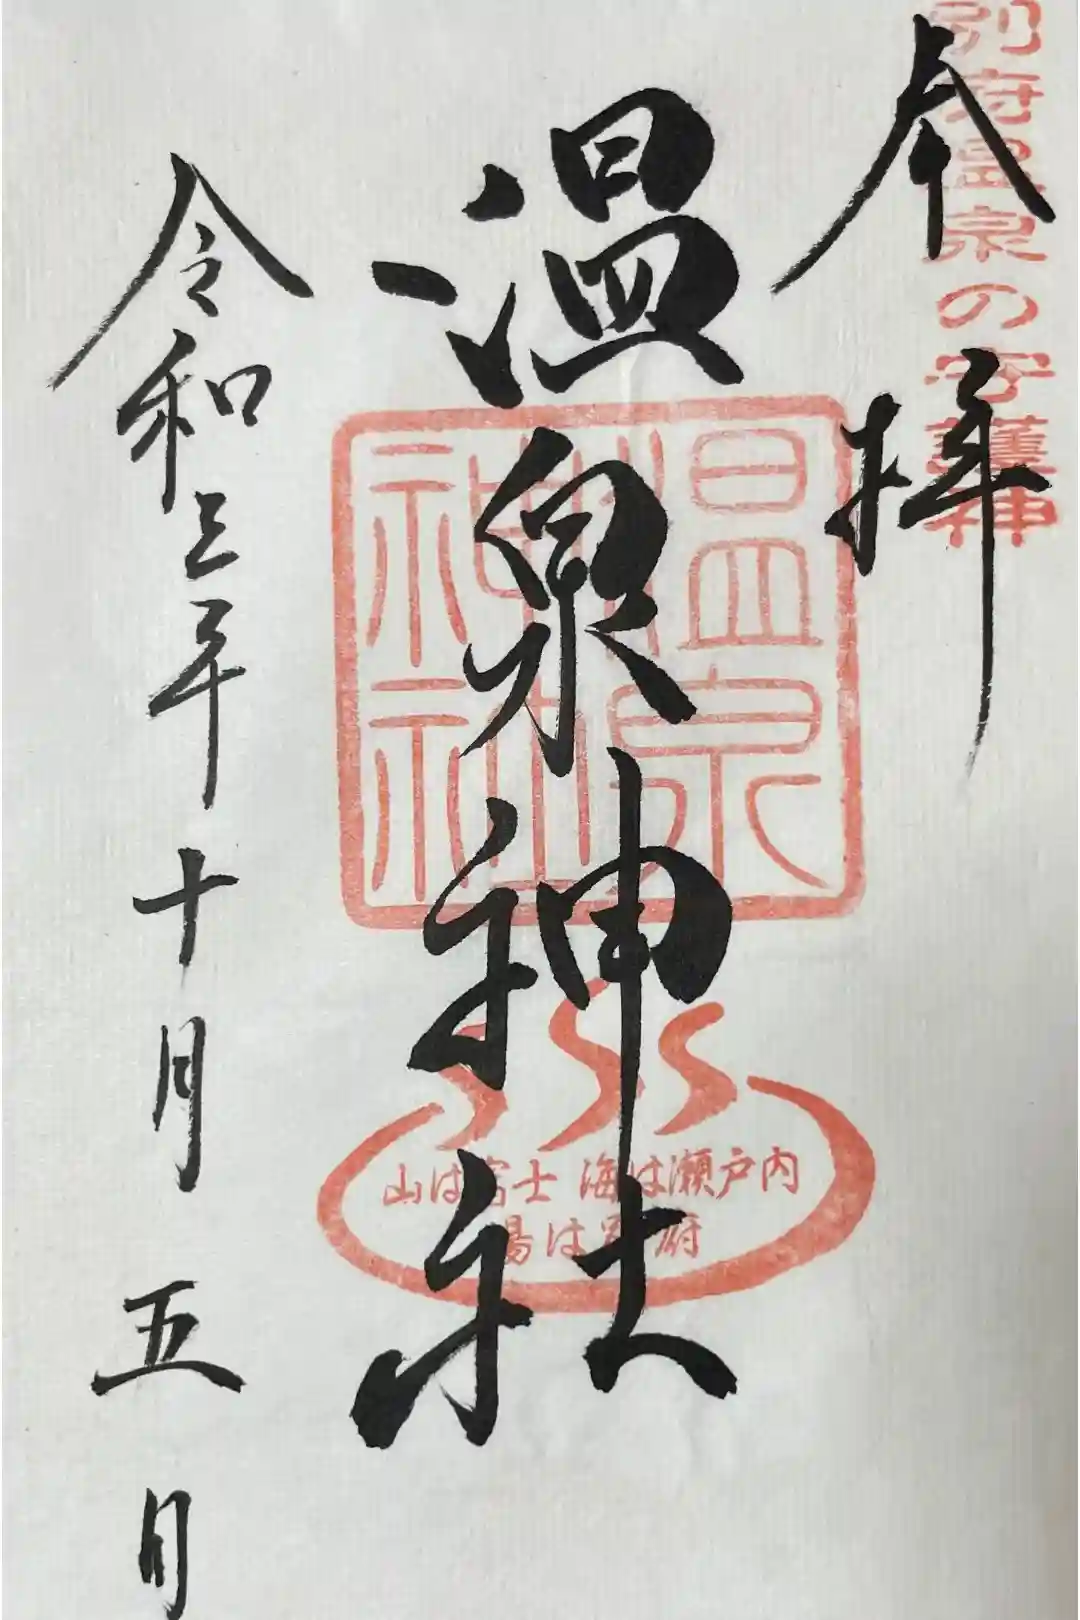 別府温泉の守護神
奉拝
温泉神社
温泉
神社
山は富士 海は瀬戸内
湯は別府
令和三年十月五日